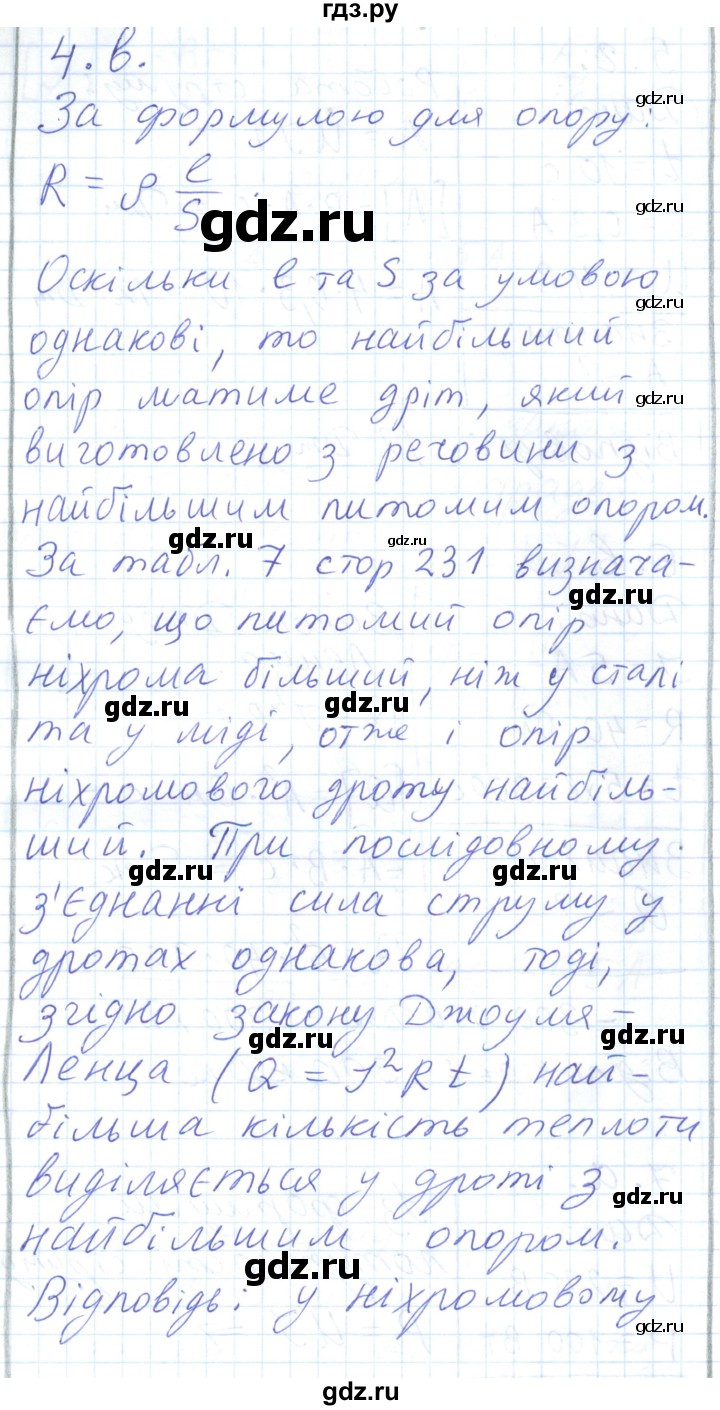 гдз.ру
4.в.
gdz.ru
За формулою для опору:
gdz.ru
R = ρ l/S
gdz.ru
gdz.ru
Оскільки l та S за умовою
gdz.ru
однакові, то найбільший
опір матиме дріт, який
gdz.ru
виготовлено з речовини з
найбільшим питомим опором.
gdz.ru
gdz.ru
За табл. 7 стор 231 визнача-
gdz.ru
ємо, що питомий опір
ніхрома більший, ніж у сталі
gdz.ru
gdz.ru
та у міді, отже і опір
ніхромового дроту найбіль-
ший. При послідовному
gdz.ru
gdz.ru
з'єднанні сила струму у
дротах однакова, тоді,
згідно закону Джоуля-
gdz.ru
gdz.ru
Ленца (Q = I²Rt) най-
більша кількість теплоти
виділяється у дроті з
gdz.ru
найбільшим опором.
gdz.ru
Відповідь: у ніхромовому
gdz.ru
gdz.ru